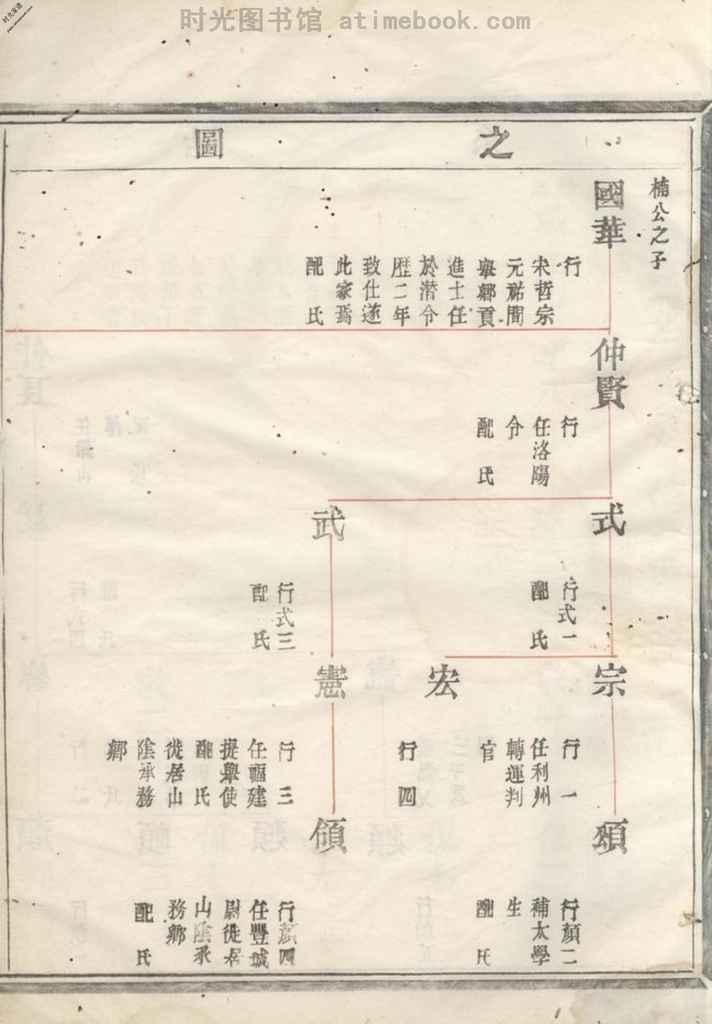 时光图书馆 atimebook.com
之圖
楠公之子
國華
行
宋哲宗
元祐間
舉鄉貢
進士任
於潛令
歷二年
致仕遂
此家焉
配氏
仲賢
行
任洛陽
令
配氏
式
行式一
配氏
武
行式三
配氏
宗
行一
任利州
轉運判
官
宏
行四
憲
行三
任福建
提舉使
配氏
徙居山
陰承務
鄉
頌
行顏二
補太學
生
配氏
領
行顏四
任豐城
尉徙居
山陰承
務鄉
配氏